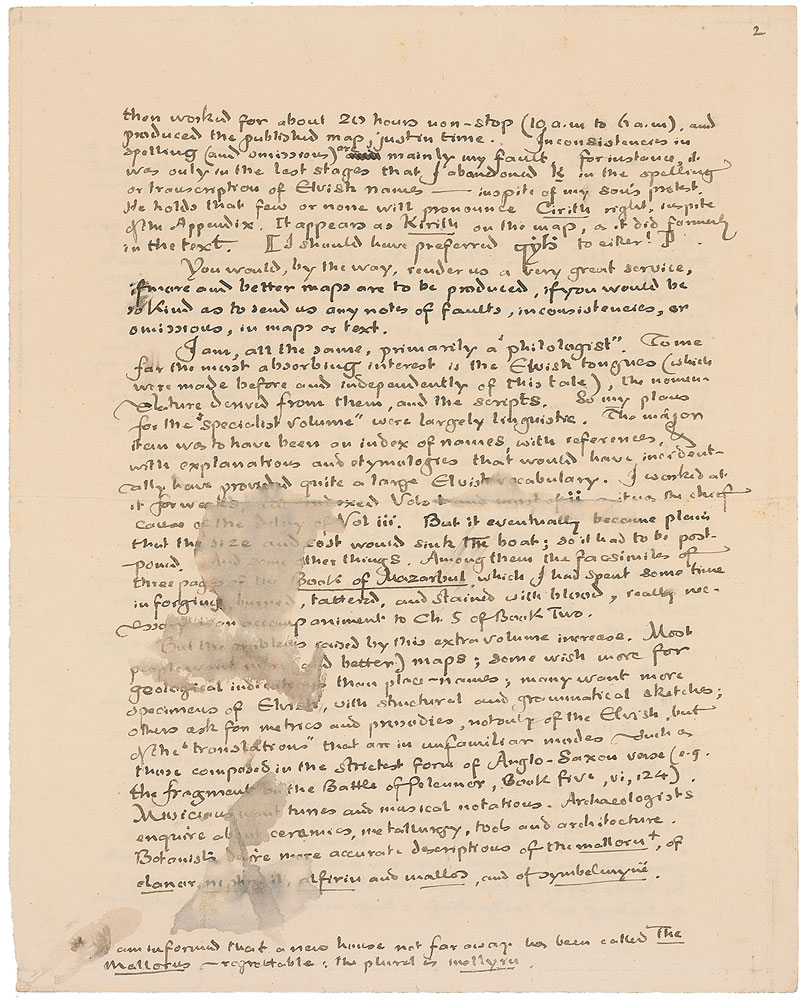 2
then worked for about 20 hours non-stop (10 a.m to 6 a.m), and
produced the published map, just in time. Inconsistencies in
spelling (and omissions) are mainly my fault. for instance, it
was only in the last stages that I abandoned k in the spelling
or transcription of Elvish names — inspite of my son's protest.
He holds that few or none will pronounce Cirith right, inspite
of the Appendix. It appears as Kirith on the map, as it did formerly
in the text. [I should have preferred to either!]
You would, by the way, render us a very great service,
if more and better maps are to be produced, if you would be
so kind as to send us any notes of faults, inconsistencies, or
omissions, in maps or text.
I am, all the same, primarily a "philologist". To me
far the most absorbing interest is the Elvish tongues (which
were made before and independently of this tale), the nomen-
clature derived from them, and the scripts. So my plans
for the "specialist volume" were largely linguistic. The major
item was to have been an index of names, with references, &
with explanations and etymologies that would have incident-
ally have provided quite a large Elvish vocabulary. I worked at
it for weeks, indexed Vols i and most of ii — it was the chief
cause of the delay of Vol iii. But it eventually became plain
that the size and cost would sink the boat; so it had to be post-
poned. And some other things. Among them the facsimiles of
three pages of the Book of Mazarbul, which I had spent some time
in forging, burned, tattered, and stained with blood, really
an accompaniment to Ch. 5 of Book Two.
But the problems raised by this extra volume increase. Most
people want more (and better) maps; some wish more for
geological indications than place-names; many want more
specimens of Elvish, with structural and grammatical sketches;
others ask for metrics and prosodies, not only of the Elvish, but
of the "translations" that are in unfamiliar modes such as
those composed in the strictest form of Anglo-Saxon verse (e.g.
the fragment on the Battle of Pelennor, Book five, vi, 124).
Musicians want tunes and musical notations. Archaeologists
enquire about ceramics, metallurgy, tools and architecture.
Botanists desire more accurate descriptions of the mallorn+, of
elanor, niphredil, alfirin and mallos, and of symbelmynë.
am informed that a new house not far away has been called The
Mallorns – regrettable: the plural is mellyrn.